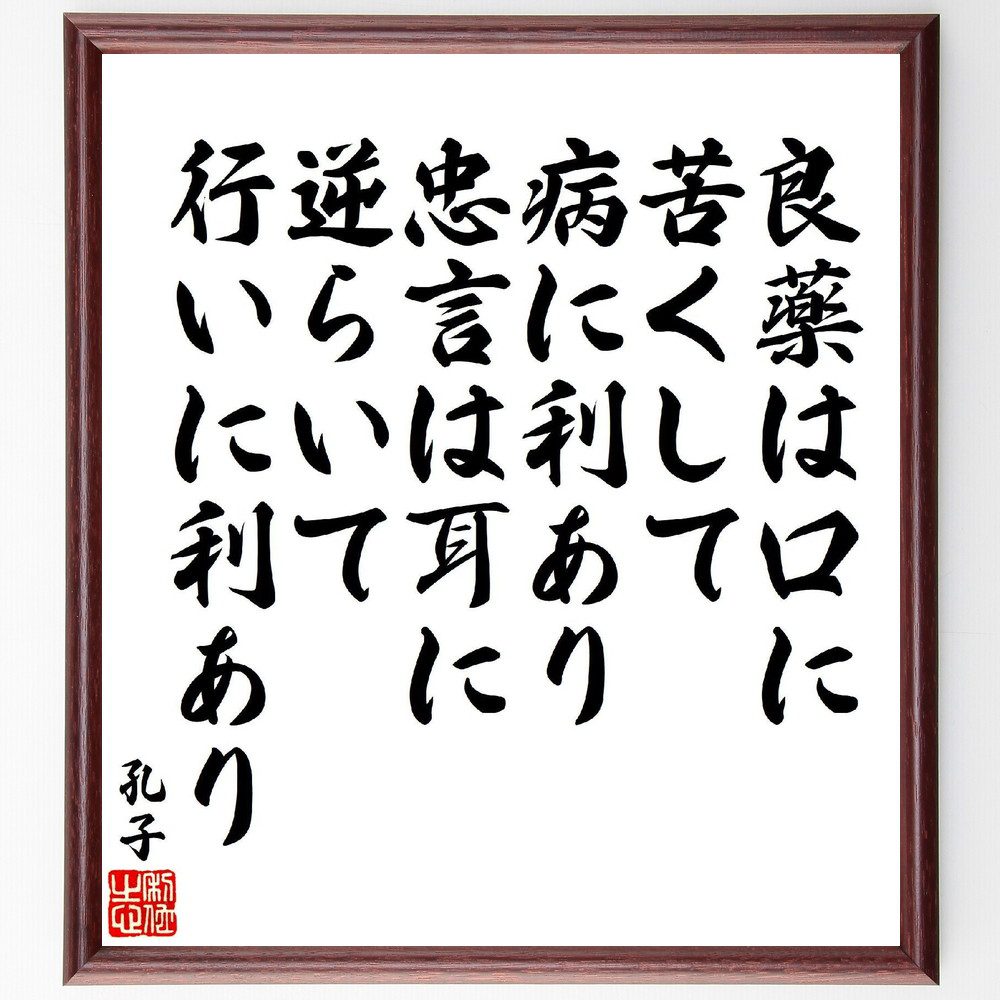 良薬は口に
苦くして
病に利あり
忠言は耳に
逆らいて
行いに利あり
孔子